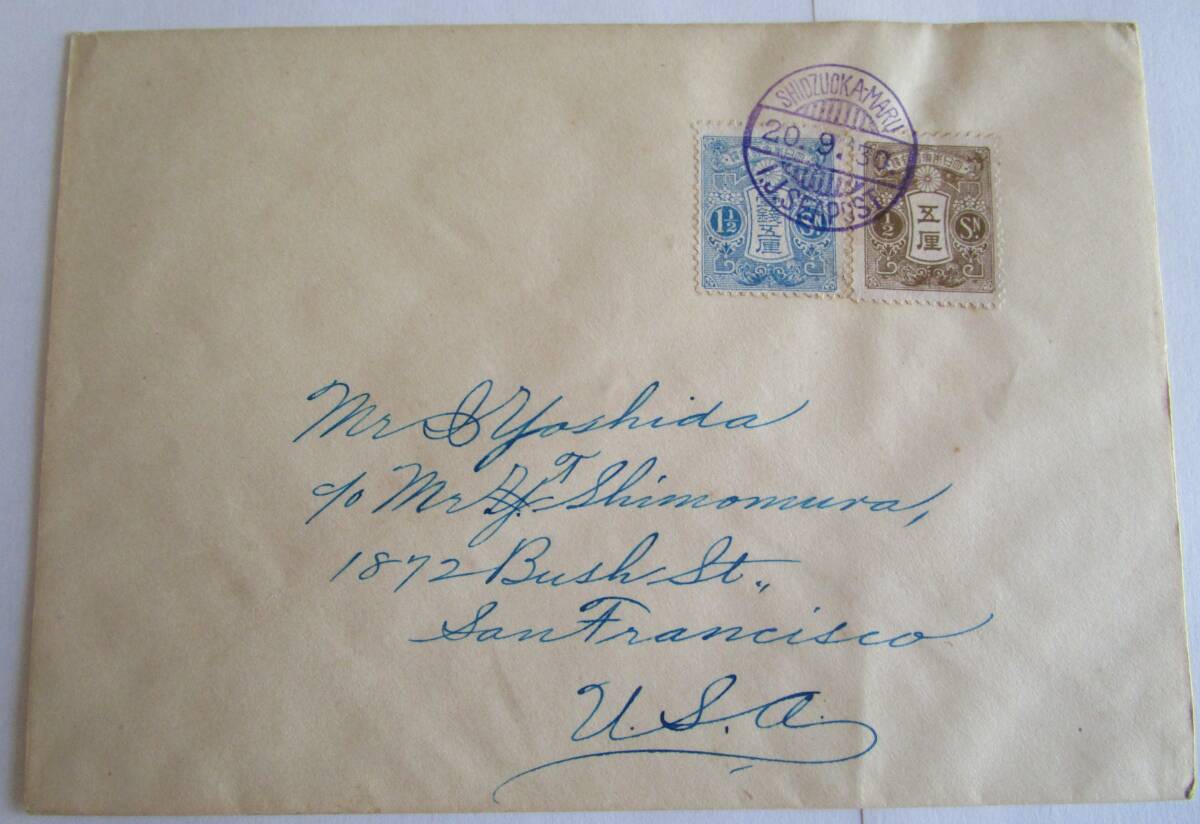 SHIDZUOKA-MARU
20.9.30
I.J.SEAPOST
1½ 銭五厘 SN
½ 五厘 SN
Mr S Yoshida
c/o Mr T Shimomura,
1872 Bush St.,
San Francisco
U.S.A.